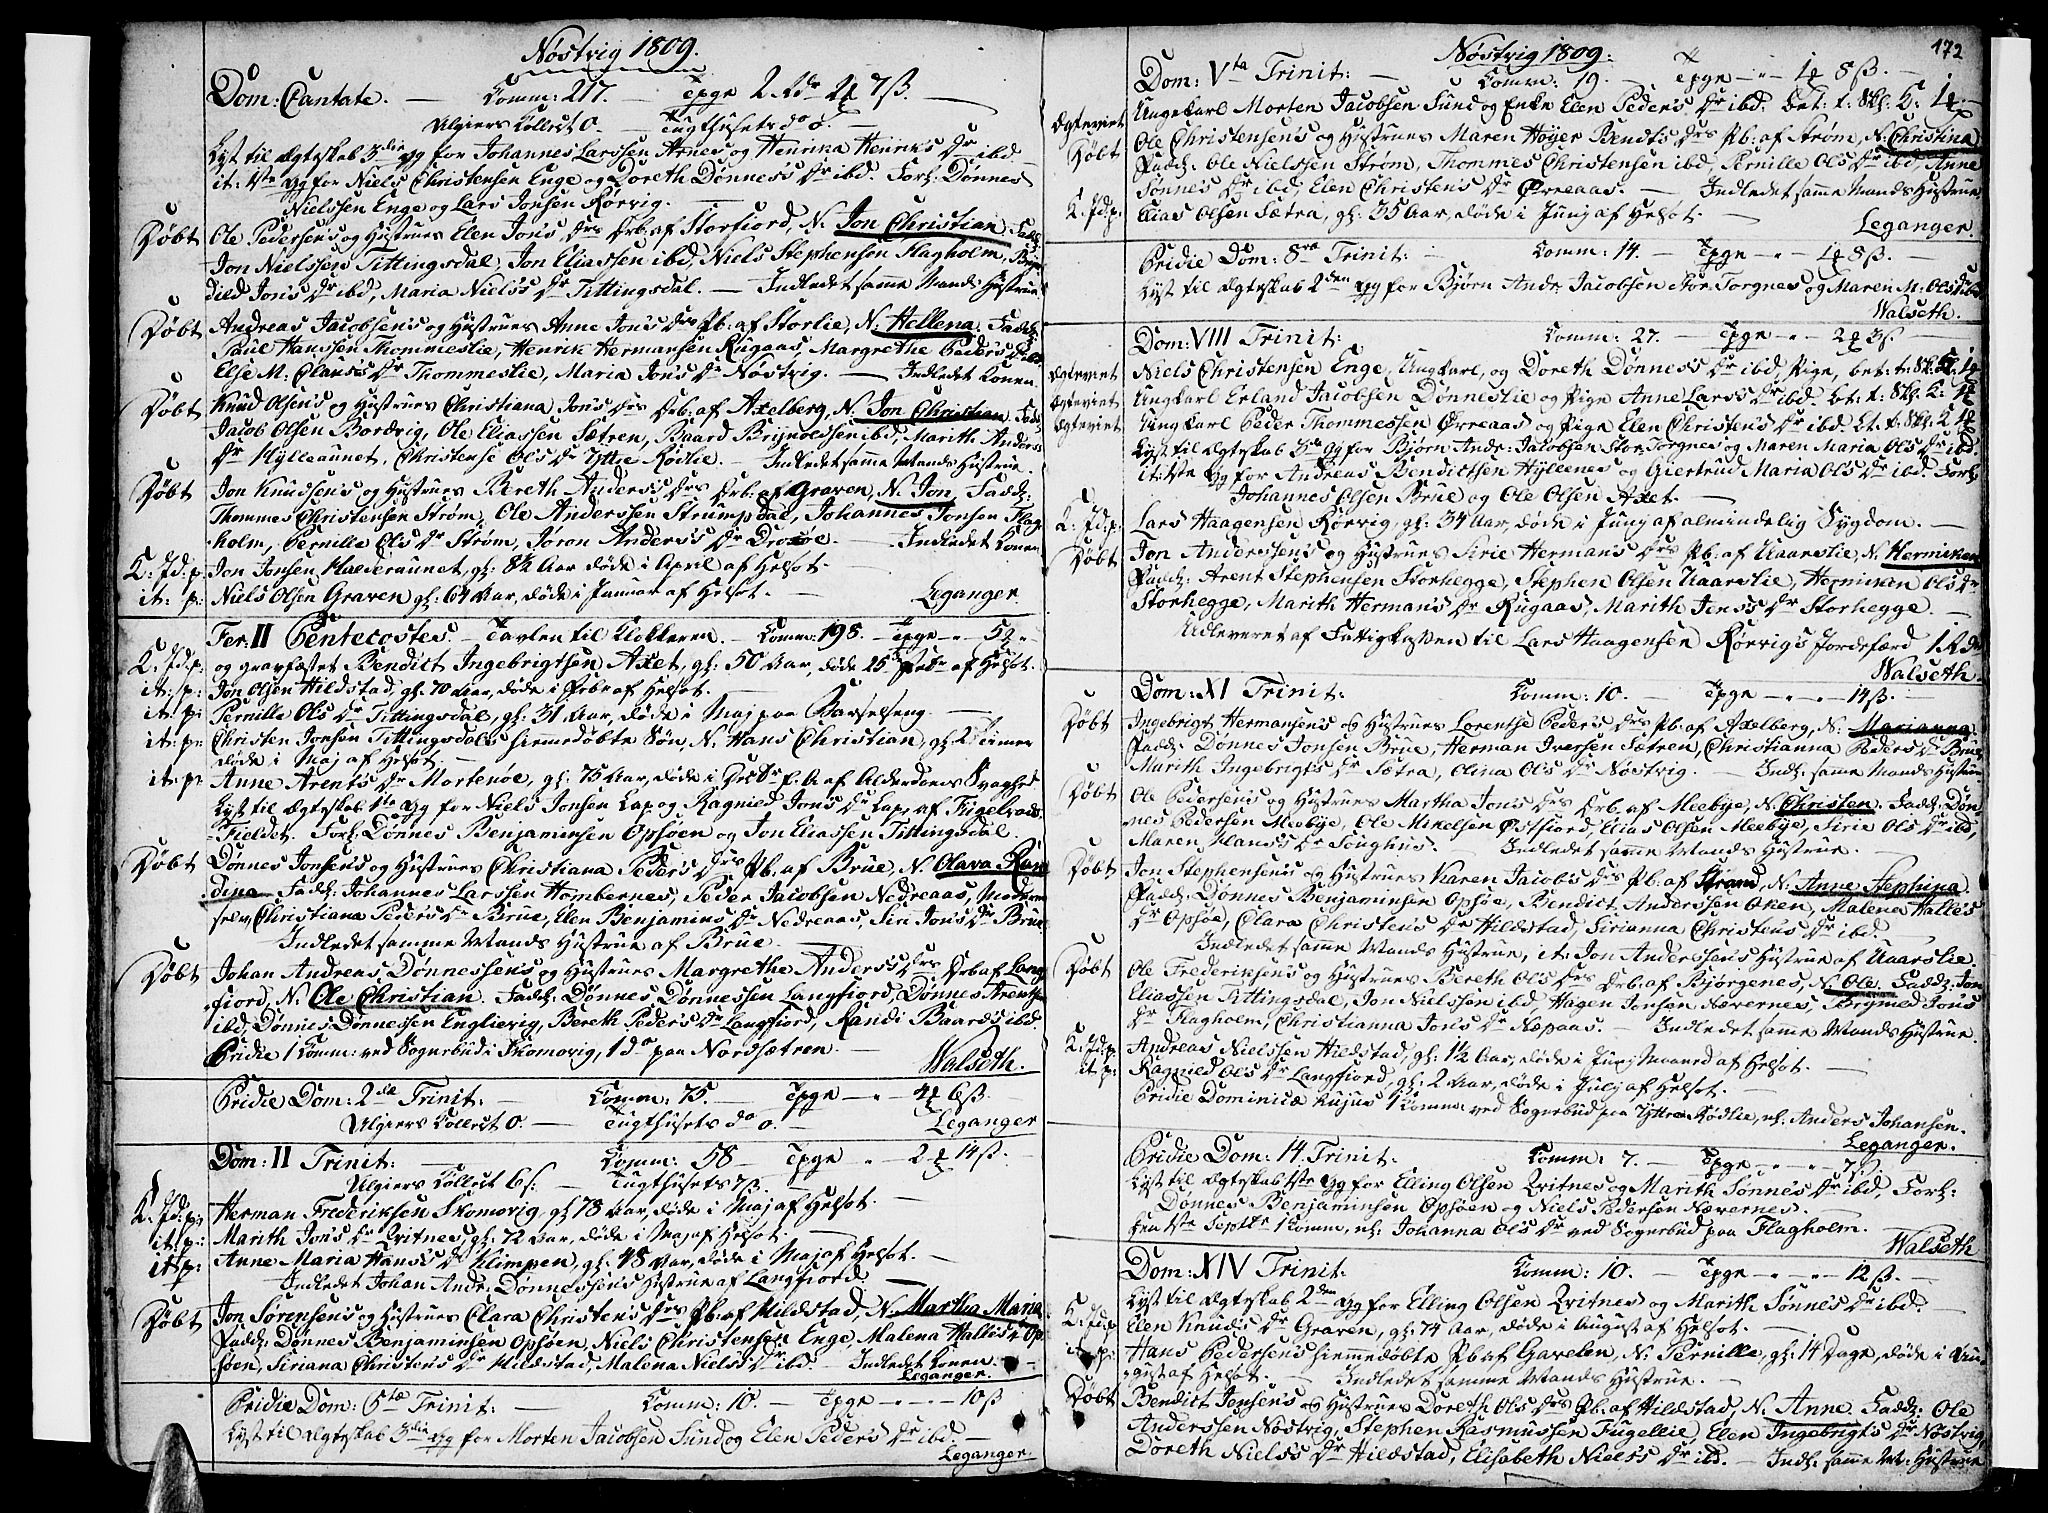 Nöstvig 1809.
Dom: Cantate. — Comm: 217. — Tpge 2 Rdr 2 ₰ 7 ß. —
Algiers Collect 0. — Tugthusets do 0. —
Lyst til Ægteskab 3die Gg for Johannes Larssen Arnes og Henrina Henrik's Dr ibd. —
it: 1ste Gg for Niels Christensen Enge og Doreth Dønnes's Dr ibd. Forl: Dønnes
Nielssen Enge og Lars Jonsen Rörvig. —
Döbt Ole Pedersen's og Hustrues Elen Jon's Drs Drb. af Storfiord, N. Jon Christian. Fadd:
Jon Nielssen Tittingsdal, Jon Eliassen ibd, Niels Stephensen Flagholm,
dild Jon's Dr ibd, Maria Niels's Dr Tittingsdal. — Indledet samme Mands Hustrue
Döbt Andreas Jacobsen's og Hustrues Anne Jon's Drs Pb: af Storlie, N. Hellena. Fadd:
Paul Hanssen Thommeslie, Henrik Hermansen Rugaas, Margrethe Peder's Dr ibd,
Else M: Claus's Dr Thommeslie, Maria Jon's Dr Nöstvig. — Indledet Konen.
Döbt Knud Olsen's og Hustrues Christiana Jon's Drs Drb: af Axelberg, N. Jon Christian. Fadd:
Jacob Olsen Bordvig, Ole Eliassen Sætren, Baard Brynoldsen ibd, Marith Anders's
Dr Hylleaunet, Christense Ols Dr Yttre Rödlie. — Indledet samme Mands Hustrue.
Döbt Jon Knudsen's og Hustrues Bereth Anders's Drs Drb: af Graven, N. Jon. Fadd:
Thommes Christensen Ström, Ole Anderssen Strumpdal, Johannes Jonsen Flag-
holm, Pernille Ols Dr Ström, Joron Anders's Dr — Indledet Konen.
K: Jd: p: Jon Jonsen Halderaunet, gl: 8½ Aar döde i April af Helsot. —
it: p: Niels Olsen Graven gl: 64 Aar, döde i Januar af Helsot. — Leganger.
Fer: II Pentecostes. — Tavlen til Klokkeren. — Comm: 198. — Tpge
K: Jd: p: og gravfæstet Bendict Ingebrigtsen Axet, gl: 50 Aar, döde 15de Febr af Helsot.
it: p: Jon Olsen Hildstad, gl: 70 Aar, döde i Febr af Helsot. —
it: p: Pernille Ols Dr Tittingsdal, gl: 31 Aar, döde i Maj paa Barselseng. —
it: p: Christen Jonsen Tittingsdals hiemmedöbte Sön, N. Hans Christian, gl: 2 Timer
döde i Maj af Helsot. —
it: p: Anne Arent's Dr Mortenöe, gl: 75 Aar, döde i af Alderdoms Svaghed
Lyst til Ægteskab 1ste Gg for Niels Jonsen Lap og Ragnild Jon's Dr Lap, af
Fieldet. Forl: Dönnes Benjaminsen Opsöen og Jon Eliassen Tittingsdal.
Döbt Dönnes Jonsen's og Hustrues Christiana Peder's Drs Pb. af Brue, N. Olava Ran-
dina. Fadd: Johannes Larssen Hombernes, Peder Jacobsen Nedreaas, Moderen
selv, Christiana Peder's Dr Brue, Elen Benjamins Dr Nedreaas, Siri Jon's Dr Brue
Indledet samme Mands Hustrue af Brue. —
Döbt Johan Andreas Dönnessen's og Hustrues Margrethe Anders's Drs Drb. af Lang-
fiord, N. Ole Christian. Fadd: Dönnes Dönnessen Langfiord, Dönnes Arentsen
ibd, Dönnes Dönnessen Englievig, Bereth Peder's Dr Langfiord, Randi Baards ibd
Pridie 1 Comm: ved Sognebud i Skomovig, 1 do paa Nordsætren. — Walseth.
Pridie Dom: 2da Trinit: — Comm: 75. — Tpge — „ 4 ₰ 6 ß. —
Algiers Collect 0. — Tugthusets do 0. — Leganger
Dom: II Trinit: Comm: 58 — Tpge „ 2 ₰ 14 ß. —
Algiers Collect 6 ß: — Tugthusets 7 ß. —
K: Jd: p: Herman Frederiksen Skomovig, gl: 78 Aar, döde i Maj af Helsot. —
it: p: Marith Jon's Dr Qvitnes, gl: 72 Aar, döde i Maj af Helsot. —
it: p: Anne Maria Hans's Dr Klimpen, gl: 48 Aar, döde i Maj af Helsot. —
Indledet Johan Andr: Dönnessen's Hustrue af Langfiord. —
Döbt Jon Sörensen's og Hustrues Clara Christens Drs Pb. af Hildstad, N. Martha Maria.
Fadd: Dönnes Benjaminsen Opsöen, Niels Christensen Enge, Malena Halles Dr Op-
söen, Siriana Christens Dr Hildstad, Malena Niels's Dr ibd. — Indledet Konen. —
Leganger.
Pridie Dom: 5tæ Trinit: — Comm: 10. — Tpge — „ — 10 ß
Lyst til Ægteskab 3die Gg for Morten Jacobsen Sund og Elen Peder's Dr ibd. —
Leganger.
172
Nöstvig 1809:
Dom: Vta Trinit: — Comm: 19. — Tpge — „ 1 ₰ 8 ß. —
Ægteviet Ungekarl Morten Jacobsen Sund og Enke Elen Peder's Dr ibd. bet: t: Skl: K: 1 ₰. —
Döbt Ole Christensen's og Hustrues Maren Höyer Bendts Drs Pb: af Ström, N. Christina.
Fadd: Ole Nielssen Ström, Thommes Christensen ibd, Pernille Ols Dr ibd, Anne
Sönnes Dr ibd, Elen Christens Dr Örreaas. — Indledet samme Mands Hustrue.
K: Jd: p: Elias Olsen Sætra, gl: 35 Aar, döde i Junj af Helsot. —
Leganger.
Pridie Dom: 8va Trinit: — Comm: 14. — Tpge — „ — 1 ₰ 8 ß. —
Lyst til Ægteskab 2den Gg for Bjørn Andr: Jacobsen Stor-Torgnes og Maren M. Ols Dr ibd.
Walseth.
Dom: VIII Trinit: Comm: 27. — Tpge „ — 2 ₰ 3 ß. —
Ægteviet Niels Christensen Enge, Ungkarl, og Doreth Dönnes's Dr ibd, Pige, bet: t: Skl: K: 1 ₰
Ægteviet Ungkarl Erland Jacobsen Dönneslie og Pige Anne Lars's Dr ibd. bt: t: Skl: K: 1 ₰
Ægteviet Ungkarl Peder Thommessen Örreaas og Pige Elen Christen's Dr ibd. bt: t: Skl: K: 1 ₰
Lyst til Ægteskab 3die Gg for Bjørn Andr: Jacobsen Stor-Torgnes og Maren Maria Ols Dr ibd.
it: 1ste Gg for Andreas Bendictsen Hyllenes og Giertrud Maria Ols Dr ibd. Forl:
Johannes Olsen Brue og Ole Olsen Axet. —
K: Jd: p: Lars Haagensen Rörvig, gl: 34 Aar, döde i Junj af almindelig Sygdom. —
Döbt Jon Anderssen's og Hustrues Sirie Herman's Drs Pb: af Uaarslie, N. Herniken.
Fadd: Arent Stephensen Storhegge, Stephen Olsen Uaarslie, Herniken Ols Dr
Storhegge, Marith Herman's Dr Rugaas, Marith Jens's Dr Storhegge. —
Udleveret af Fattigkassen til Lars Haagensen Rörvig's Jordefærd 1 Rdr
Walseth.
Dom: XI Trinit: Comm: 10. — Tpge — „ — 14 ß. —
Döbt Ingebrigt Hermansen's og Hustrues Lorentse Peder's Drs Pb: af Axelberg, N: Marianna.
Fadd: Dönnes Jonsen Brue, Herman Iversen Sætren, Christianna Peders Dr Brue,
Marith Ingebrigts Dr Sætra, Olina Ols Dr Nöstvig. — Indl: samme Mands Hustrue
Döbt Ole Pedersen's og Hustrues Martha Jon's Drs Drb. af Meebye, N. Christen. Fadd: Dön-
nes Pedersen Meebye, Ole Mikelsen Östfiord, Elias Olsen Meebye, Sirie Ols Dr ibd,
Maren Hans's Dr — Indledet samme Mands Hustrue. —
Döbt Jon Stephensen's og Hustrues Karen Jacob's Drs Pb. af Strand, N. Anne Stephina.
Fadd: Dönnes Benjaminsen Opsöe, Bendict Anderssen Oken, Malena Halles
Dr Opsöe, Clara Christens Dr Hildstad, Sirianna Christens Dr ibd.
Indledet samme Mands Hustrue, it: Jon Anderssens Hustrue af Uaarslie.
Döbt Ole Frederiksen's og Hustrues Bereth Ols Drs Drb. af Bjørgenes, N. Ole. Fadd: Jon
Eliassen Tittingsdal, Jon Nielssen ibd, Hagen Jensen Nævernes, Jon's
Dr Flagholm, Christianna Jon's Dr Næpaas. — Indledet samme Mands Hustrue.
K: Jd: p: Andreas Nielssen Hildstad, gl: 1½ Aar, döde i Junj Maaned af Helsot. —
it: p: Ragnild Ols Dr Langfiord, gl: 2 Aar, döde i Julj af Helsot. —
Pridie Dominicæ hujus 1 Comm: ved Sognebud paa Yttre Rödlie, nl: Anders Johansen.
Leganger.
Pridie Dom: 14. Trinit: Comm: 7. — Tpge — „ — 7 ß. —
Lyst til Ægteskab 1ste Gg for Elling Olsen Qvitnes og Marith Sönnes Dr ibd, Forl:
Dönnes Benjaminsen Opsöen og Niels Pedersen Nævernes.
Den 1ste Septbr 1 Comm, nl: Johanna Ols Dr ved Sognebud paa Flagholm.
Walseth
Dom: XIV Trinit: Comm: 10. — Tpge — „ — 12 ß. —
Lyst til Ægteskab 2den Gg for Elling Olsen Qvitnes og Marith Sönnes Dr ibd. —
K: Jd: p Elen Knuds Dr Graven, gl: 74 Aar, döde i August af Helsot. —
it: p: Hans Pedersens hiemmedöbte Pb af Gavelen, N: Pernille, gl: 14 Dage, döde i Au-
gust af Helsot. — Indledet samme Mands Hustrue. —
Döbt Bendict Jonsen's og Hustrues Doreth Ols Drs Pb. af Hildstad, N. Anne. Fadd: Ole
Anderssen Nöstvig, Stephen Rasmussen Fugellie, Elen Ingebrigts Dr Nöstvig,
Doreth Niels's Dr Hildstad, Elisabeth Niels's Dr ibd. — Indl: samme M: Hustrue